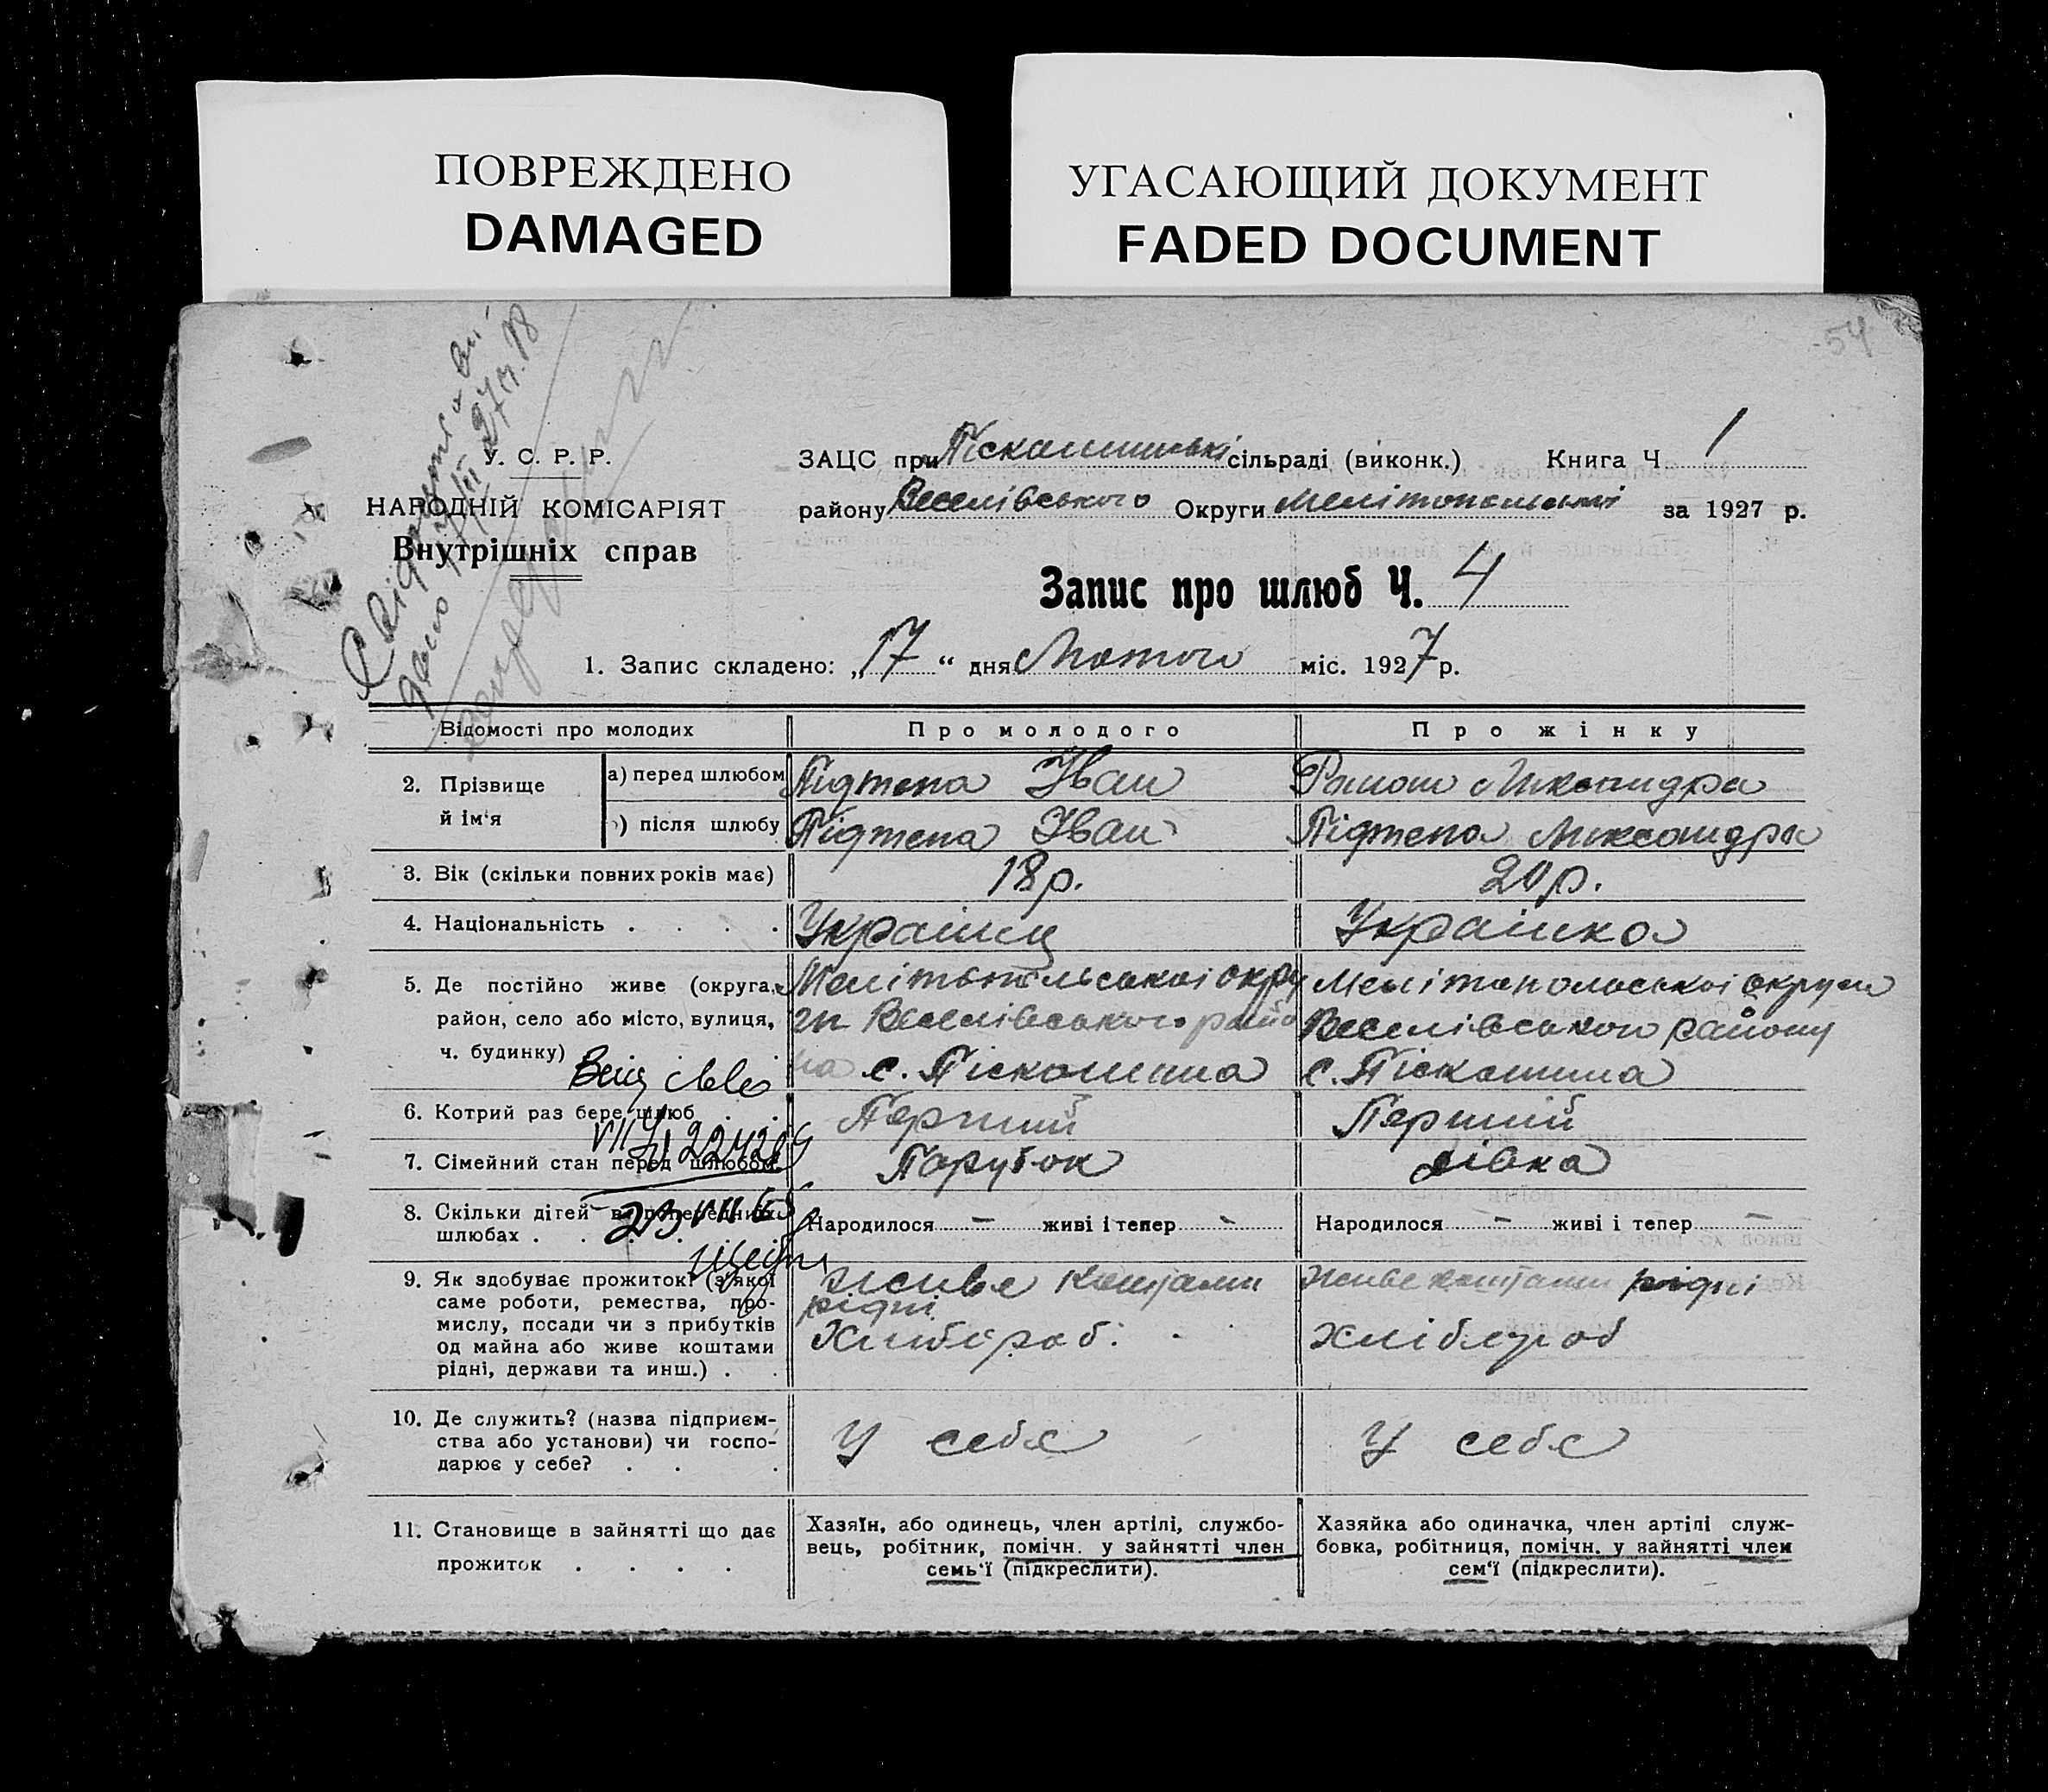 ПОВРЕЖДЕНО
DAMAGED
УГАСАЮЩИЙ ДОКУМЕНТ
FADED DOCUMENT
54
У. С. Р. Р.
НАРОДНІЙ КОМІСАРІЯТ
Внутрішніх справ
ЗАЦС при сільраді (виконк.) Книга Ч 1
району Веселівського Округи за 1927 р.
Запис про шлюб Ч. 4
1. Запис складено: „17“ дня Лютого міс. 1927 р.
Відомості про молодих
Про молодого
Про жінку
2. Прізвище й ім'я
а) перед шлюбом
Підтепа Іван
Александра
) після шлюбу
Підтепа Іван
Підтепа Александра
3. Вік (скільки повних років має)
18 р.
20 р.
4. Національність . . . .
Українц
Українка
5. Де постійно живе (округа,
район, село або місто, вулиця,
ч. будинку) . . .
Мелітопольської окру
ги Веселівського райо
на с. Піскошина
Мелітопольської округи
Веселівського району
с. Піскошина
6. Котрий раз бере шлюб . .
Перший
Перший
7. Сімейний стан перед шлюбом.
Парубок
дівка
8. Скільки дітей в попередніх
шлюбах . . . .
Народилося - живі і тепер -
Народилося - живі і тепер -
9. Як здобуває прожиток? (з якої
саме роботи, ремества, про-
мислу, посади чи з прибутків
од майна або живе коштами
рідні, держави та инш.) . .
живе коштами
рідні
Хлібороб.
живе коштами рідні
хлібороб
10. Де служить? (назва підприєм-
ства або установи) чи госпо-
дарює у себе? . . .
У себе
У себе
11. Становище в зайнятті що дає
прожиток . . . .
Хазяїн, або одинець, член артілі, службо-
вець, робітник, помічн. у зайнятті член
семь'ї (підкреслити).
Хазяйка або одиначка, член артілі служ-
бовка, робітниця, помічн. у зайнятті член
сем'ї (підкреслити).